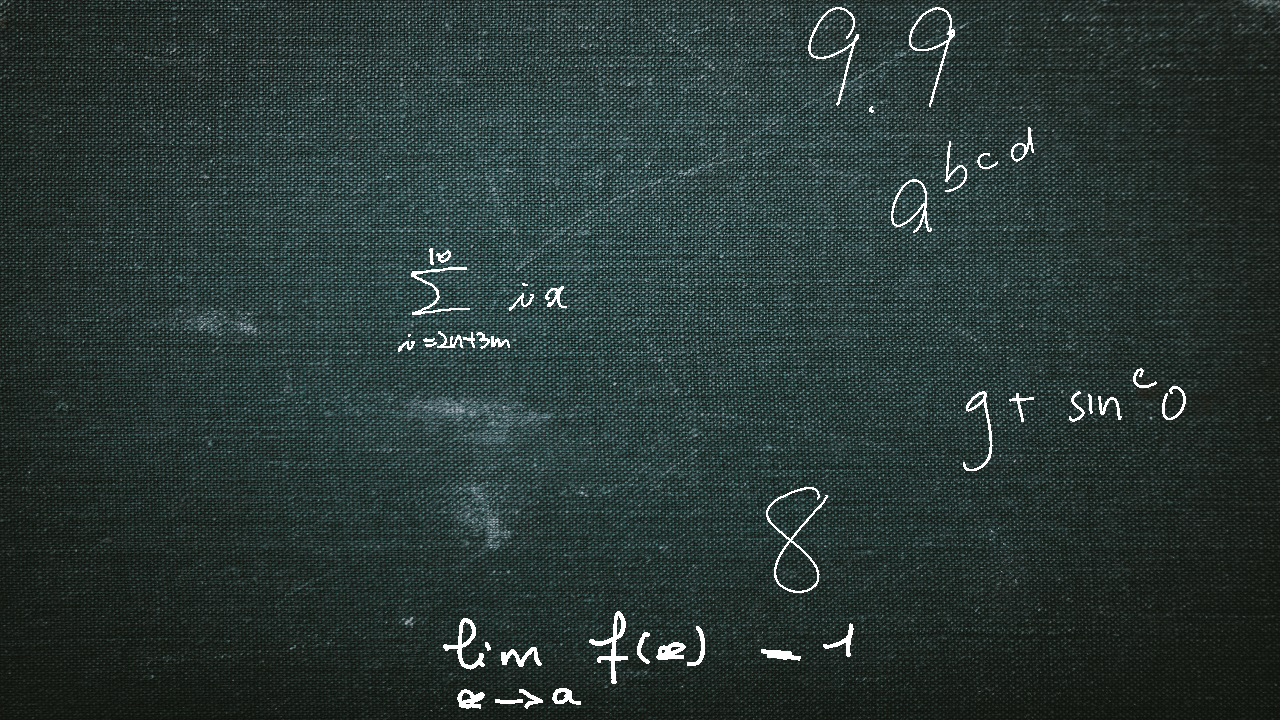 9.9
a^{b^{c^{d}}}
\sum_{i=2n+3m}^{10} ix
g + \sin^{c} 0
8
\lim_{x \to a} f(x) - 1